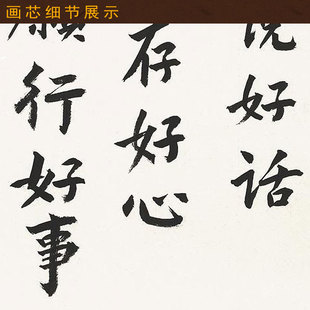 画芯细节展示
说好话
存好心
愿行好事